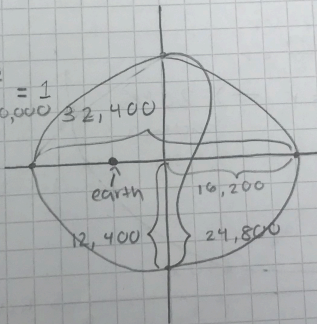 = 1
0,000 32,400
earth
16,200
12,400 24,800